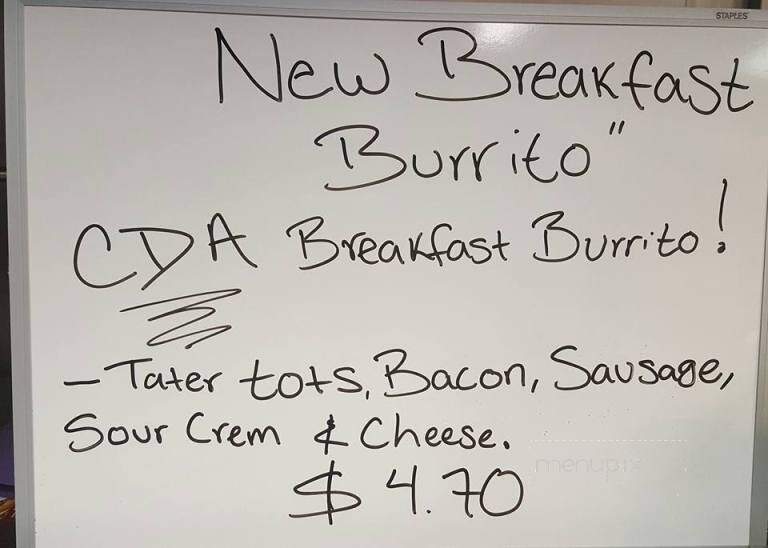 STAPLES
New Breakfast
Burrito"
CDA Breakfast Burrito!
- Tater tots, Bacon, Sausage,
Sour Crem & Cheese.
menupix
$ 4.70